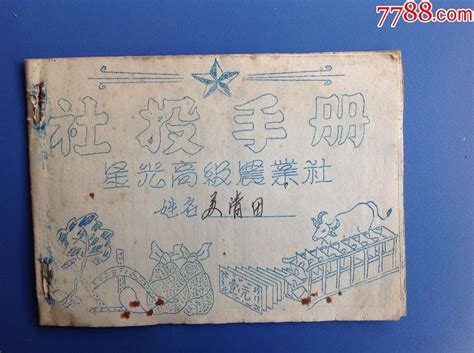 7788.com
社投手册
星光高級農業社
姓名 姜清田
元